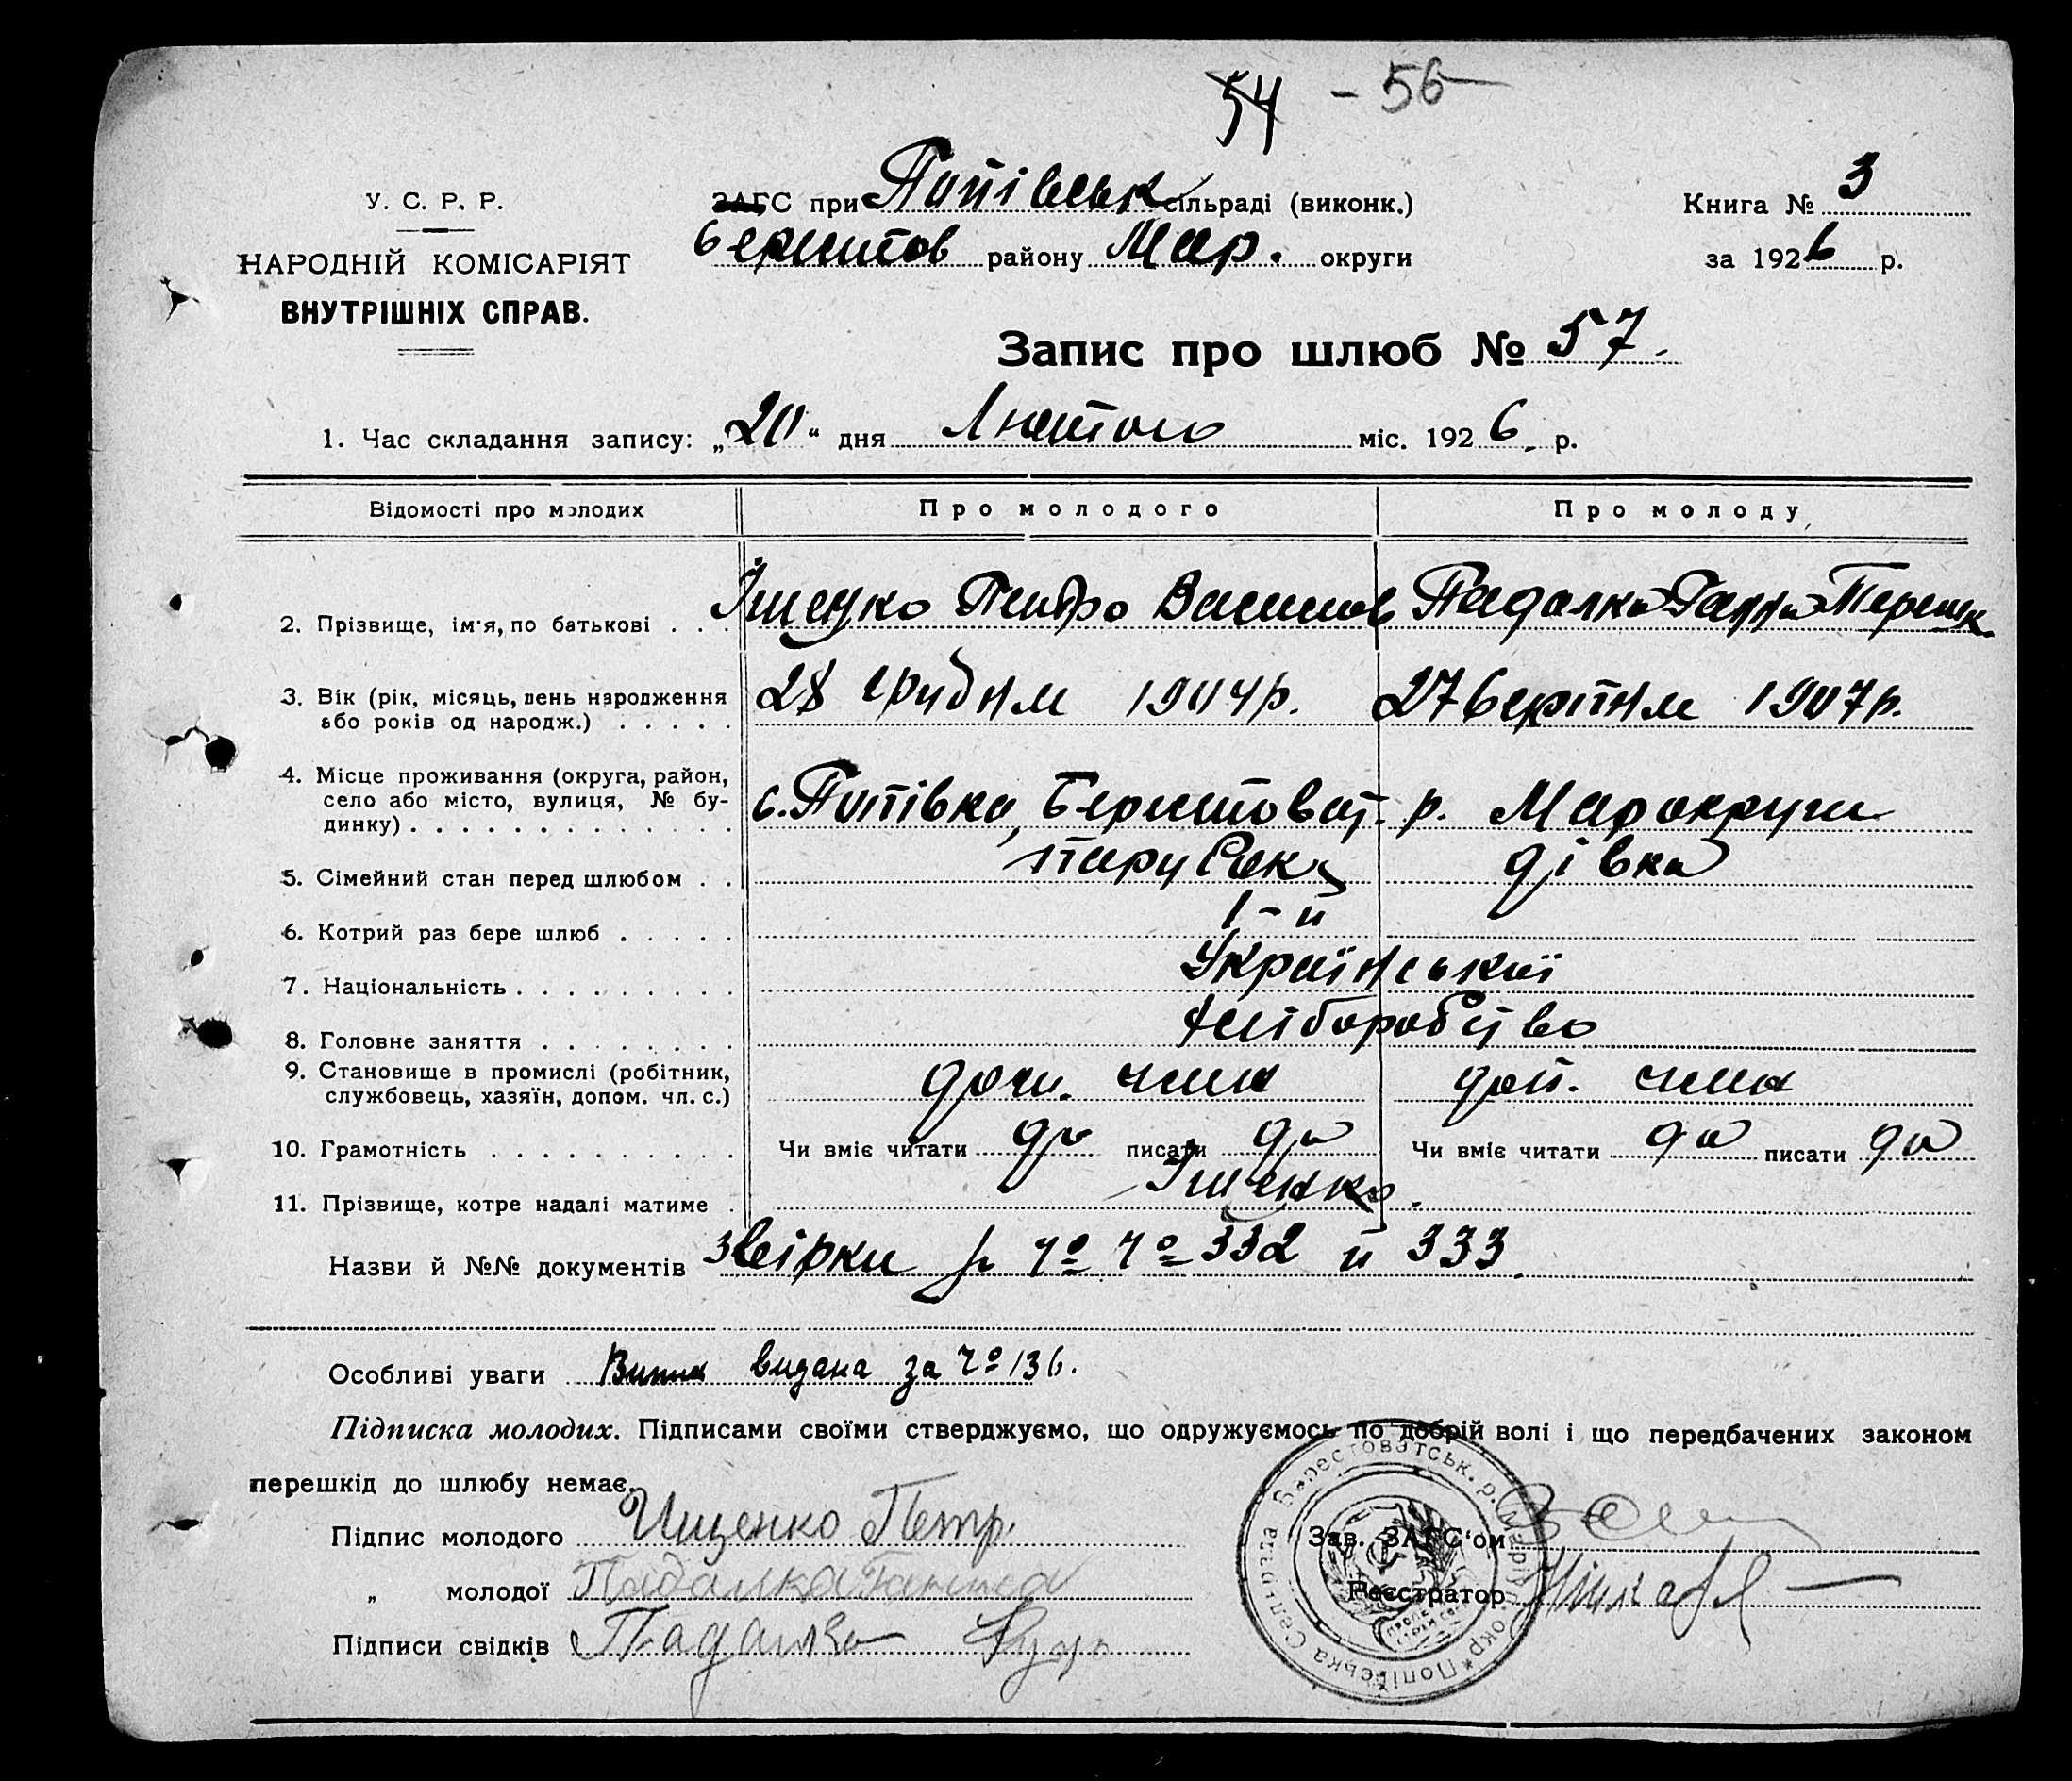 54 - 56
У. С. Р. Р.
НАРОДНІЙ КОМІСАРІЯТ
ВНУТРІШНІХ СПРАВ.
ЗАГС при Попівськ сільраді (виконк.)
берестов району Мар. округи
Книга № 3
за 1926 р.
Запис про шлюб № 57.
1. Час складання запису: „20“ дня Лютого міс. 1926. р.
Відомості про молодих
Про молодого
Про молоду
2. Прізвище, ім'я, по батькові . . . Іщенко Петро Василів Падалка Ганна Терешк.
3. Вік (рік, місяць, день народження
або років од народж.) . . . . . 28 грудня 1904р. 27 серпня 1907р.
4. Місце проживання (округа, район,
село або місто, вулиця, № бу-
динку) . . . . . . . . . . . . . с. Попівка, Берестоват. р. Марокруги
5. Сімейний стан перед шлюбом . . парубок дівка
6. Котрий раз бере шлюб . . . . . 1-й
7. Національність . . . . . . . . . Української
8. Головне заняття . . . . . . . . хліборобство
9. Становище в промислі (робітник,
службовець, хазяїн, допом. чл. с.) доп. член доп. член
10. Грамотність . . . . . . . . . . Чи вміє читати да писати да Чи вміє читати да писати да
11. Прізвище, котре надалі матиме . Іщенко.
Назви й №№ документів звірки за № № 332 й 333.
Особливі уваги видана за № 136.
Підписка молодих. Підписами своїми стверджуємо, що одружуємось по добрій волі і що передбачених законом
перешкід до шлюбу немає.
Підпис молодого Ищенко Петр.
„ молодої Падалка Ганна
Підписи свідків Падалка
Зав. ЗАГС'ом
Реєстратор
Попівська Сельрада Берестоватськ. р. Маріюп. окр.